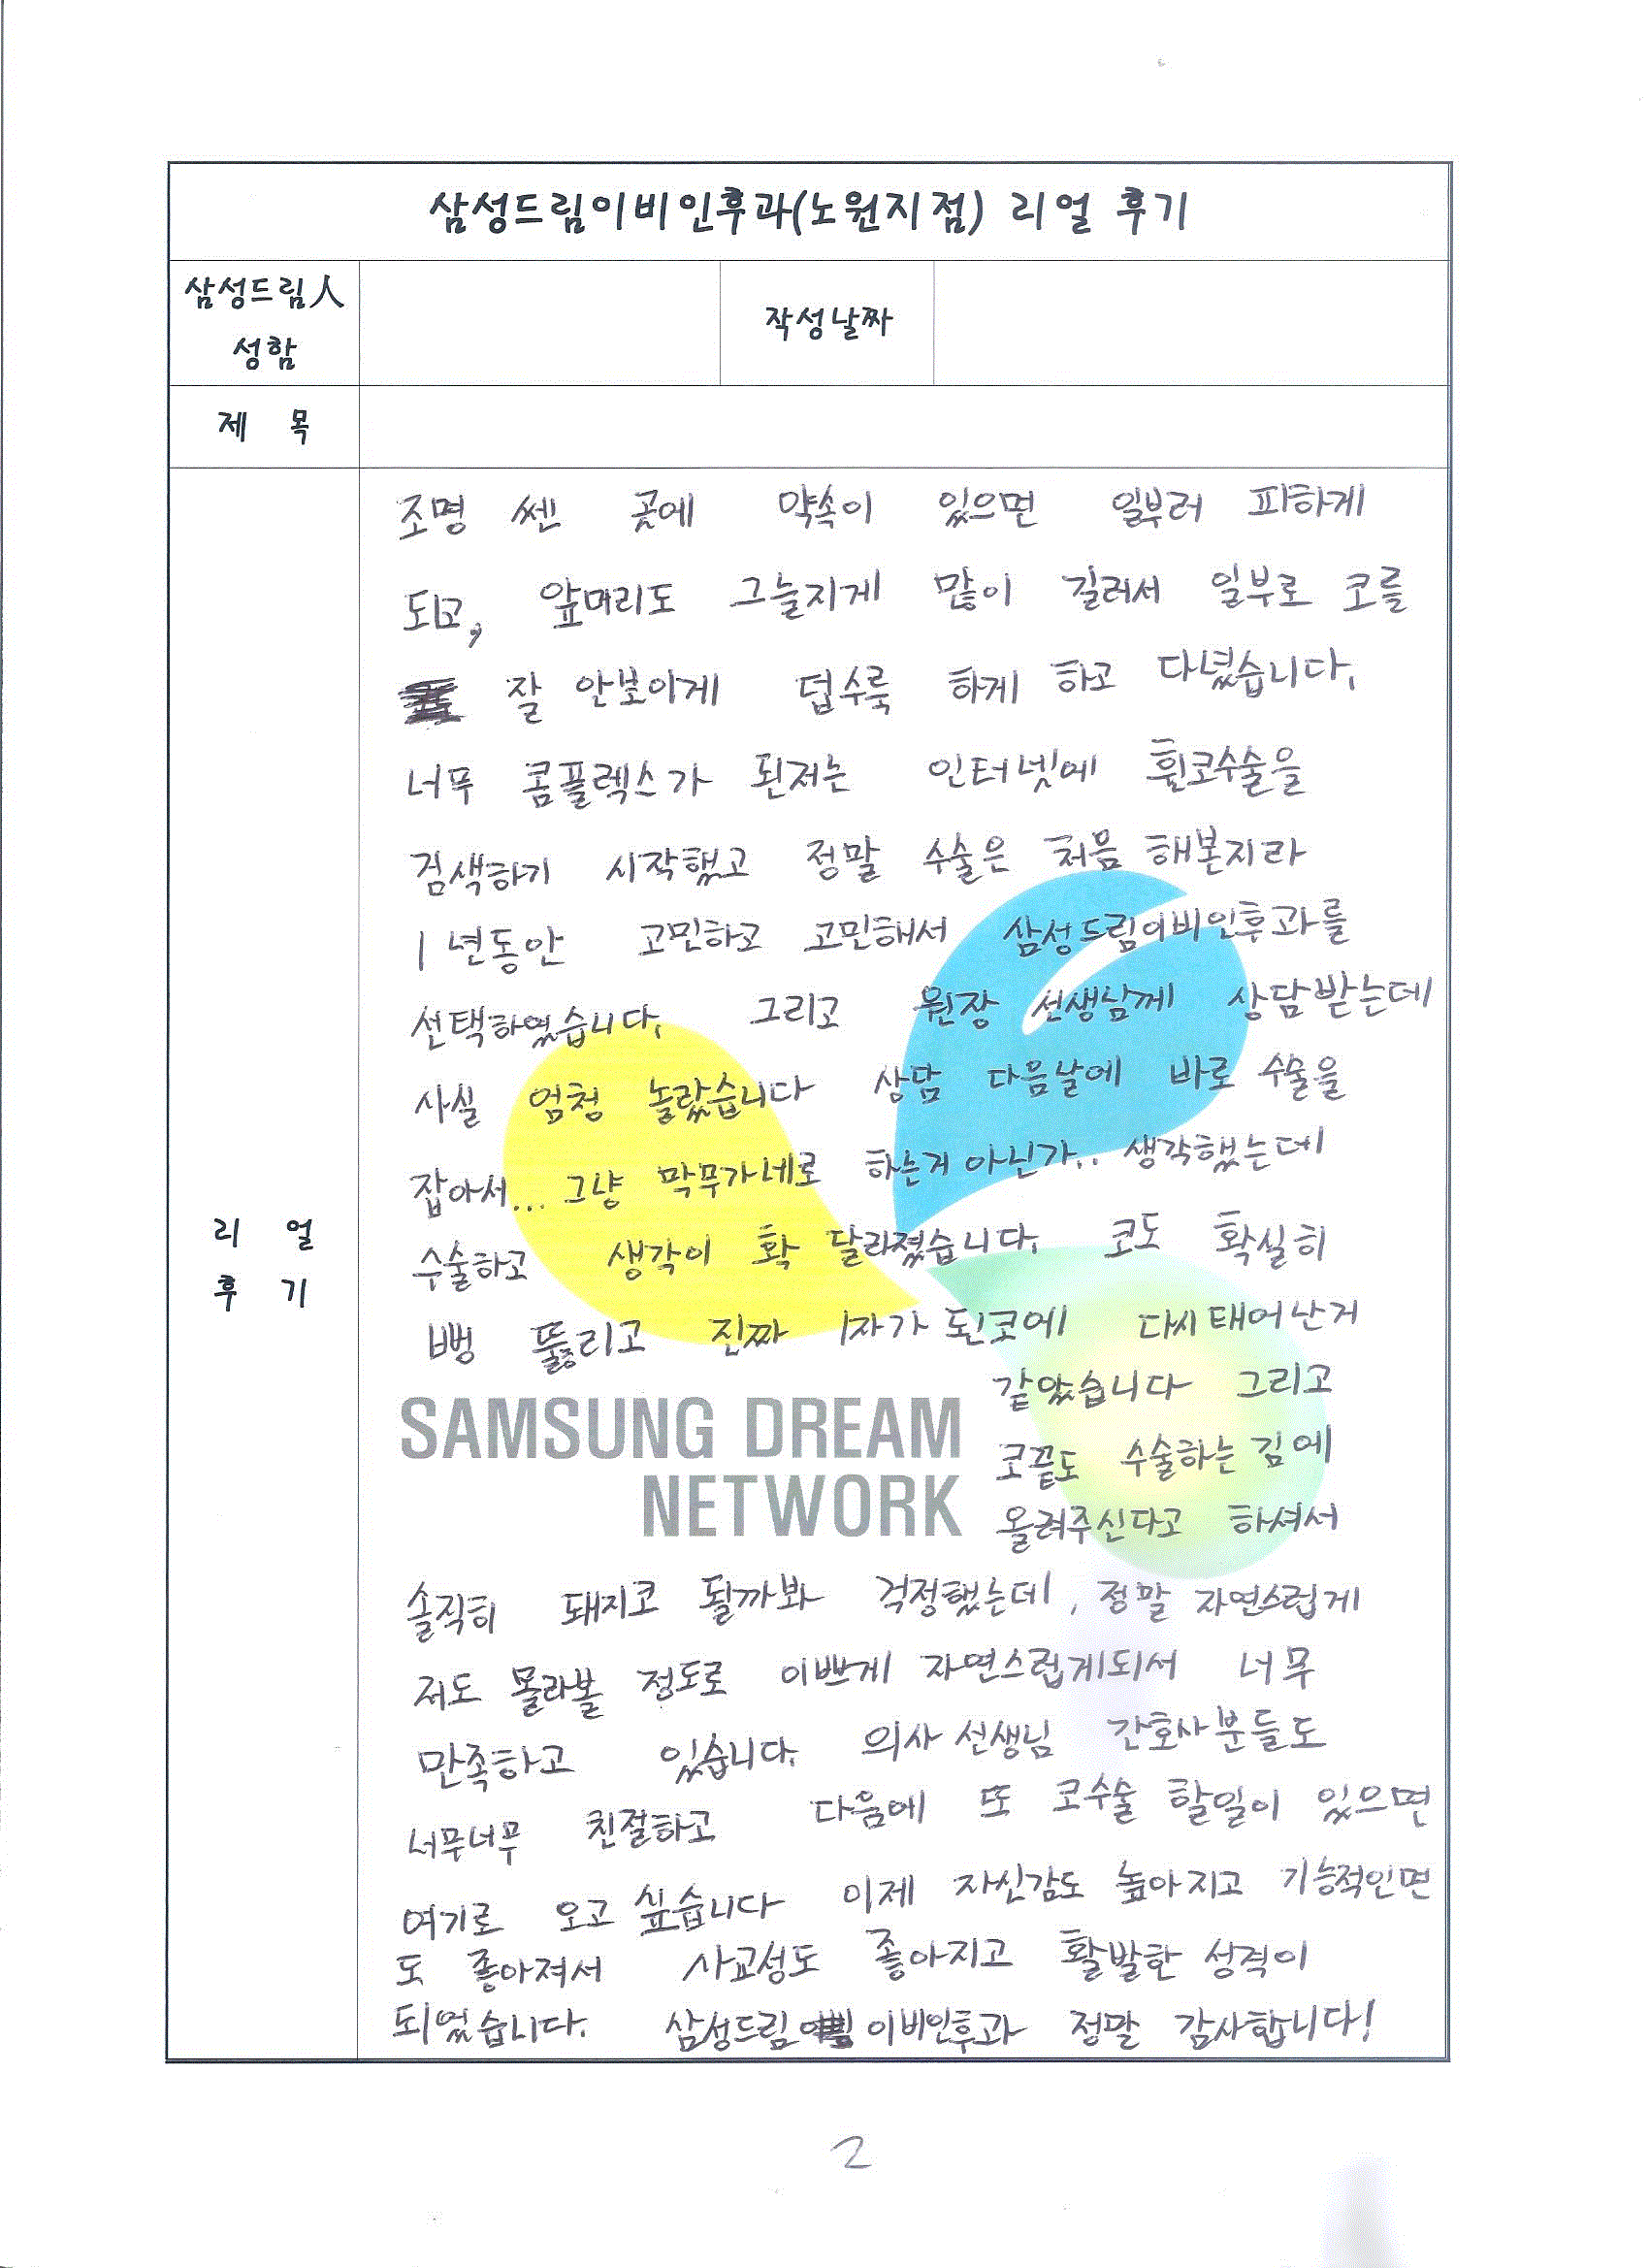 삼성드림이비인후과(노원지점) 리얼 후기
삼성드림人
성함
작성날짜
제 목
리 얼
후 기
조명 쎈 곳에 약속이 있으면 일부러 피하게
되고, 앞머리도 그늘지게 많이 길러서 일부로 코를
잘 안보이게 덥수룩 하게 하고 다녔습니다.
너무 콤플렉스가 된저는 인터넷에 휜코수술을
검색하기 시작했고 정말 수술은 처음 해본지라
1년동안 고민하고 고민해서 삼성드림이비인후과를
선택하였습니다. 그리고 원장 선생님께 상담받는데
사실 엄청 놀랐습니다 상담 다음날에 바로 수술을
잡아서... 그냥 막무가네로 하는거 아닌가.. 생각했는데
수술하고 생각이 확 달라졌습니다. 코도 확실히
뻥 뚫리고 진짜 1자가 된코에 다시 태어난거
같았습니다 그리고
SAMSUNG DREAM
NETWORK
코끝도 수술하는 김에
올려주신다고 하셔서
솔직히 돼지코 될까봐 걱정했는데, 정말 자연스럽게
저도 몰라볼 정도로 이쁘게 자연스럽게되서 너무
만족하고 있습니다. 의사 선생님 간호사분들도
너무너무 친절하고 다음에 또 코수술 할일이 있으면
여기로 오고 싶습니다 이제 자신감도 높아지고 기능적인면
도 좋아져서 사교성도 좋아지고 활발한 성격이
되었습니다. 삼성드림 이비인후과 정말 감사합니다!
2